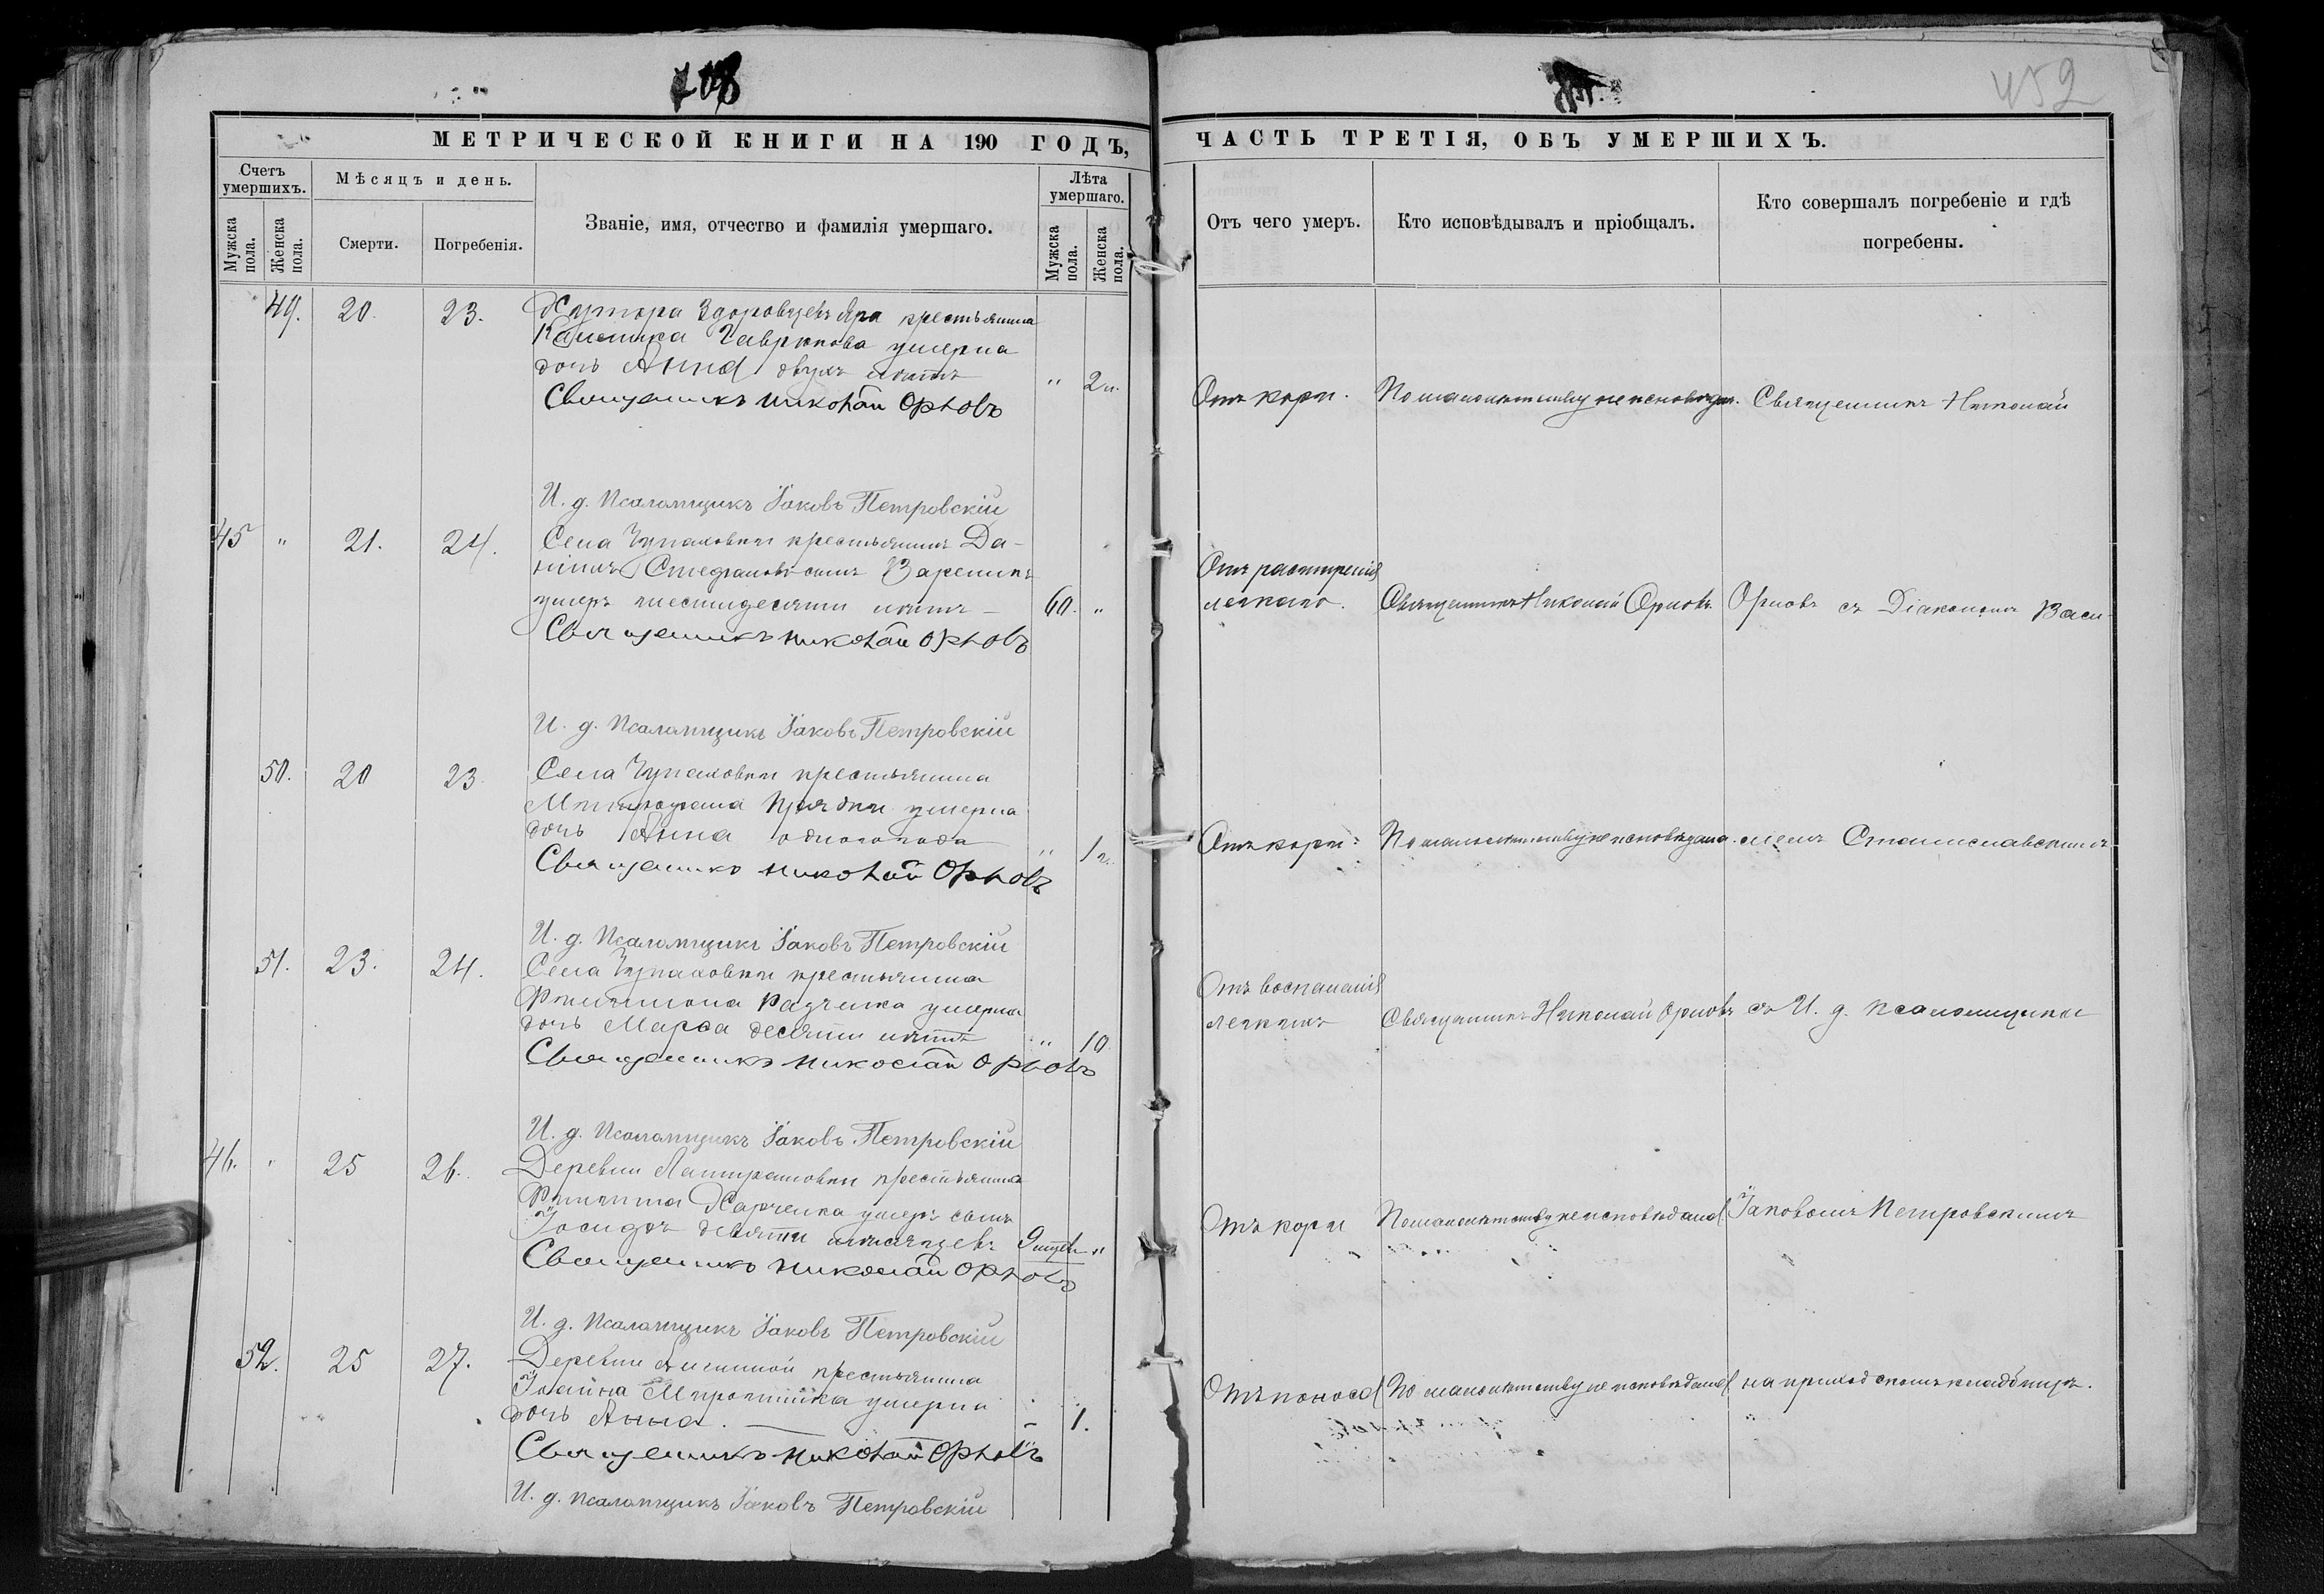 708
452
МЕТРИЧЕСКОЙ КНИГИ НА 190 ГОДЪ,
ЧАСТЬ ТРЕТІЯ, ОБЪ УМЕРШИХЪ.
Счетъ умершихъ.
Мѣсяцъ и день.
Званіе, имя, отчество и фамилія умершаго.
Лѣта умершаго.
Мужска пола.
Женска пола.
Смерти.
Погребенія.
Мужска пола.
Женска пола.
Отъ чего умеръ.
Кто исповѣдывалъ и пріобщалъ.
Кто совершалъ погребеніе и гдѣ погребены.
49. 20. 23. Хутора крестьянина
Гаврикова умерла
дочь Анна двухъ лѣтъ " 2 л.
Священникъ Николай Орловъ
Отъ кори. По малолѣтству не исповѣдыв. Священникъ Николай
И. д. Псаломщикъ Іаковъ Петровскій
45 " 21. 24. Села Чупаховки крестьянинъ Да-
ніилъ Стефановъ сынъ Вареникъ
умеръ шестидесяти лѣтъ 60. "
Священникъ Николай Орловъ
Отъ расширенія
легкаго. Священникъ Николай Орловъ. Орловъ съ Діакономъ Васи-
И. д. Псаломщикъ Іаковъ Петровскій
50. 20 23. Села Чупаховки крестьянина
Митрофана умерла
дочь Анна одного года " 1 г.
Священникъ Николай Орловъ
Отъ кори. По малолѣтству не исповѣдана. ліемъ Станиславскимъ
И. д. Псаломщикъ Іаковъ Петровскій
51. 23. 24. Села Чупаховки крестьянина
Филимона Радченка умерла
дочь Марѳа десяти лѣтъ " 10
Священникъ Николай Орловъ
Отъ воспаленія
легкихъ Священникъ Николай Орловъ съ И. д. псаломщика
И. д. Псаломщикъ Іаковъ Петровскій
46. " 25 26. Деревни крестьянина
Филиппа Харченка умеръ сынъ
девяти мѣсяцевъ 9 мцев. "
Священникъ Николай Орловъ
Отъ кори По малолѣтству не исповѣдана Іаковомъ Петровскимъ
И. д. Псаломщикъ Іаковъ Петровскій
52. 25 27. Деревни крестьянина
Іоанна умерла
дочь Анна. — - 1.
Священникъ Николай Орловъ
Отъ поноса По малолѣтству не исповѣдана на приходскомъ кладбищѣ.
И. д. псаломщикъ Іаковъ Петровскій